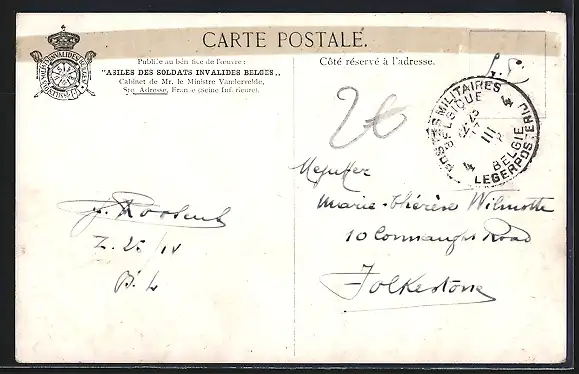 CARTE POSTALE.
Publiée au bénéfice de l'œuvre :
"ASILES DES SOLDATS INVALIDES BELGES,,
Cabinet de Mr. le Ministre Vandervelde,
Ste Adresse, France (Seine Inf. rieure).
Côté réservé à l'adresse.
POSTES MILITAIRES
BELGIQUE
4 III 4
BELGIE
LEGERPOSTERIJ
Marie-Thérèse Wilmotte
10 Connaught Road
Folkestone
Z. 25/IV
B. 4